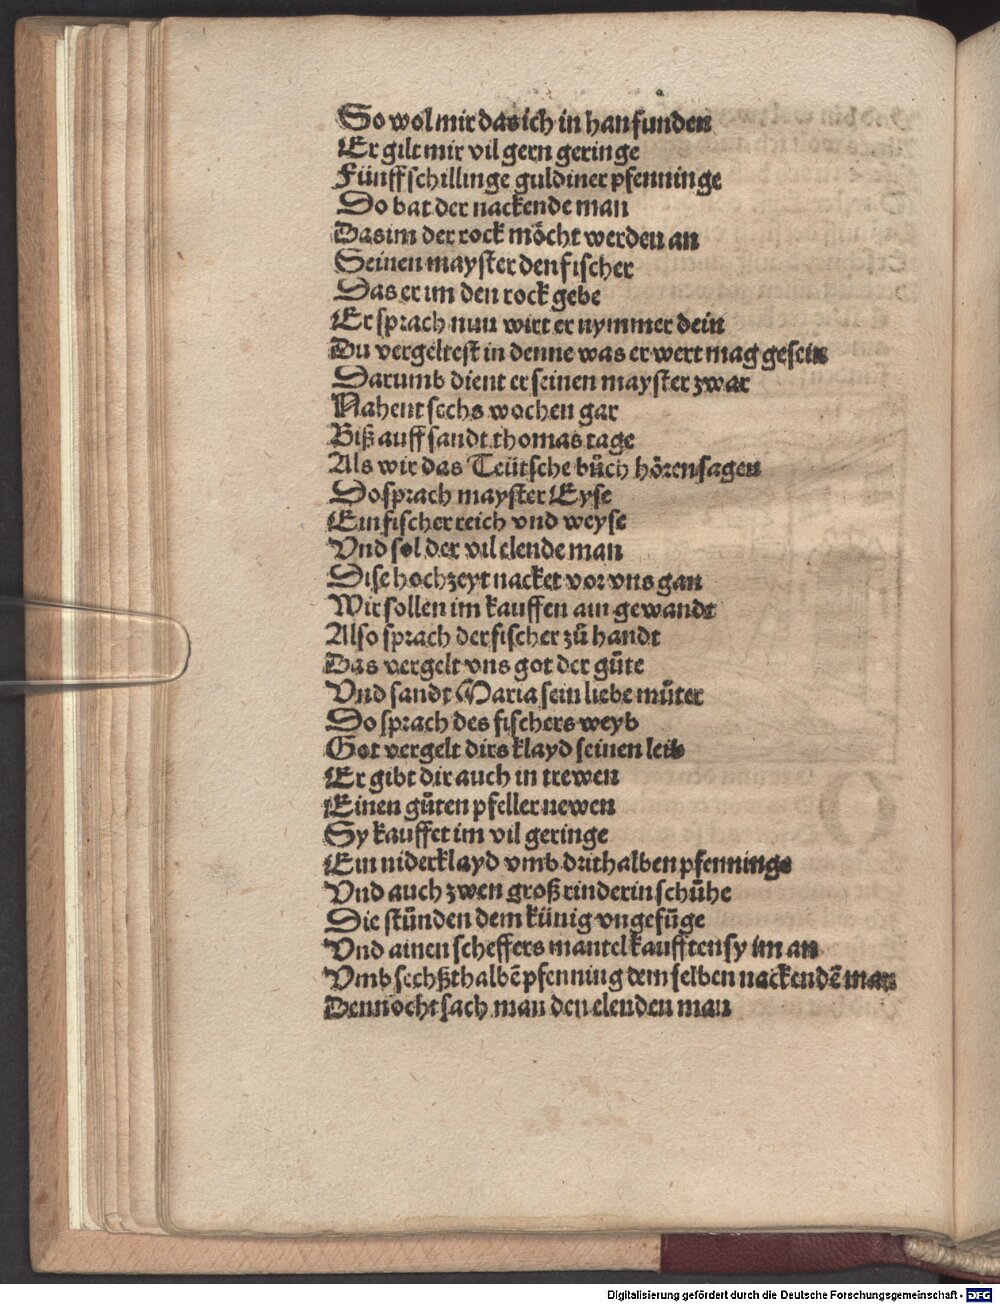 So wol mir das ich in han funden
Er gilt mir vil gern geringe
Fünff schillinge guldiner pfenninge
Do bat der nackende man
Das im der rock möcht werden an
Seinen mayster den fischer
Das er im den rock gebe
Er sprach nun wirt er nymmer dein
Du vergeltest in denne was er wert mag gesein
Darumb dient er seinen mayster zwar
Nahent sechs wochen gar
Biß auff sandt thomas tage
Als wir das Teütsche bůch hören sagen
Do sprach mayster Eyse
Ein fischer reich vnd weyse
Vnd sol der vil elende man
Dise hochzeyt nacket vor vns gan
Wir sollen im kauffen ain gewandt
Also sprach der fischer zů handt
Das vergelt vns got der gůte
Vnd sandt Maria sein liebe můter
Do sprach des fischers weyb
Got vergelt dirs klayd seinen leib
Er gibt dir auch in trewen
Einen gůten pfeller newen
Sy kauffet im vil geringe
Ein niderklayd vmb drithalben pfenninge
Vnd auch zwen groß rinderin schůhe
Die stůnden dem künig vngefůge
Vnd ainen scheffers mantel kaufften sy im an
Vmb sechßthalbē pfenning dem selben nackendē man
Dennocht sach man den elenden man
Digitalisierung gefördert durch die Deutsche Forschungsgemeinschaft - DFG